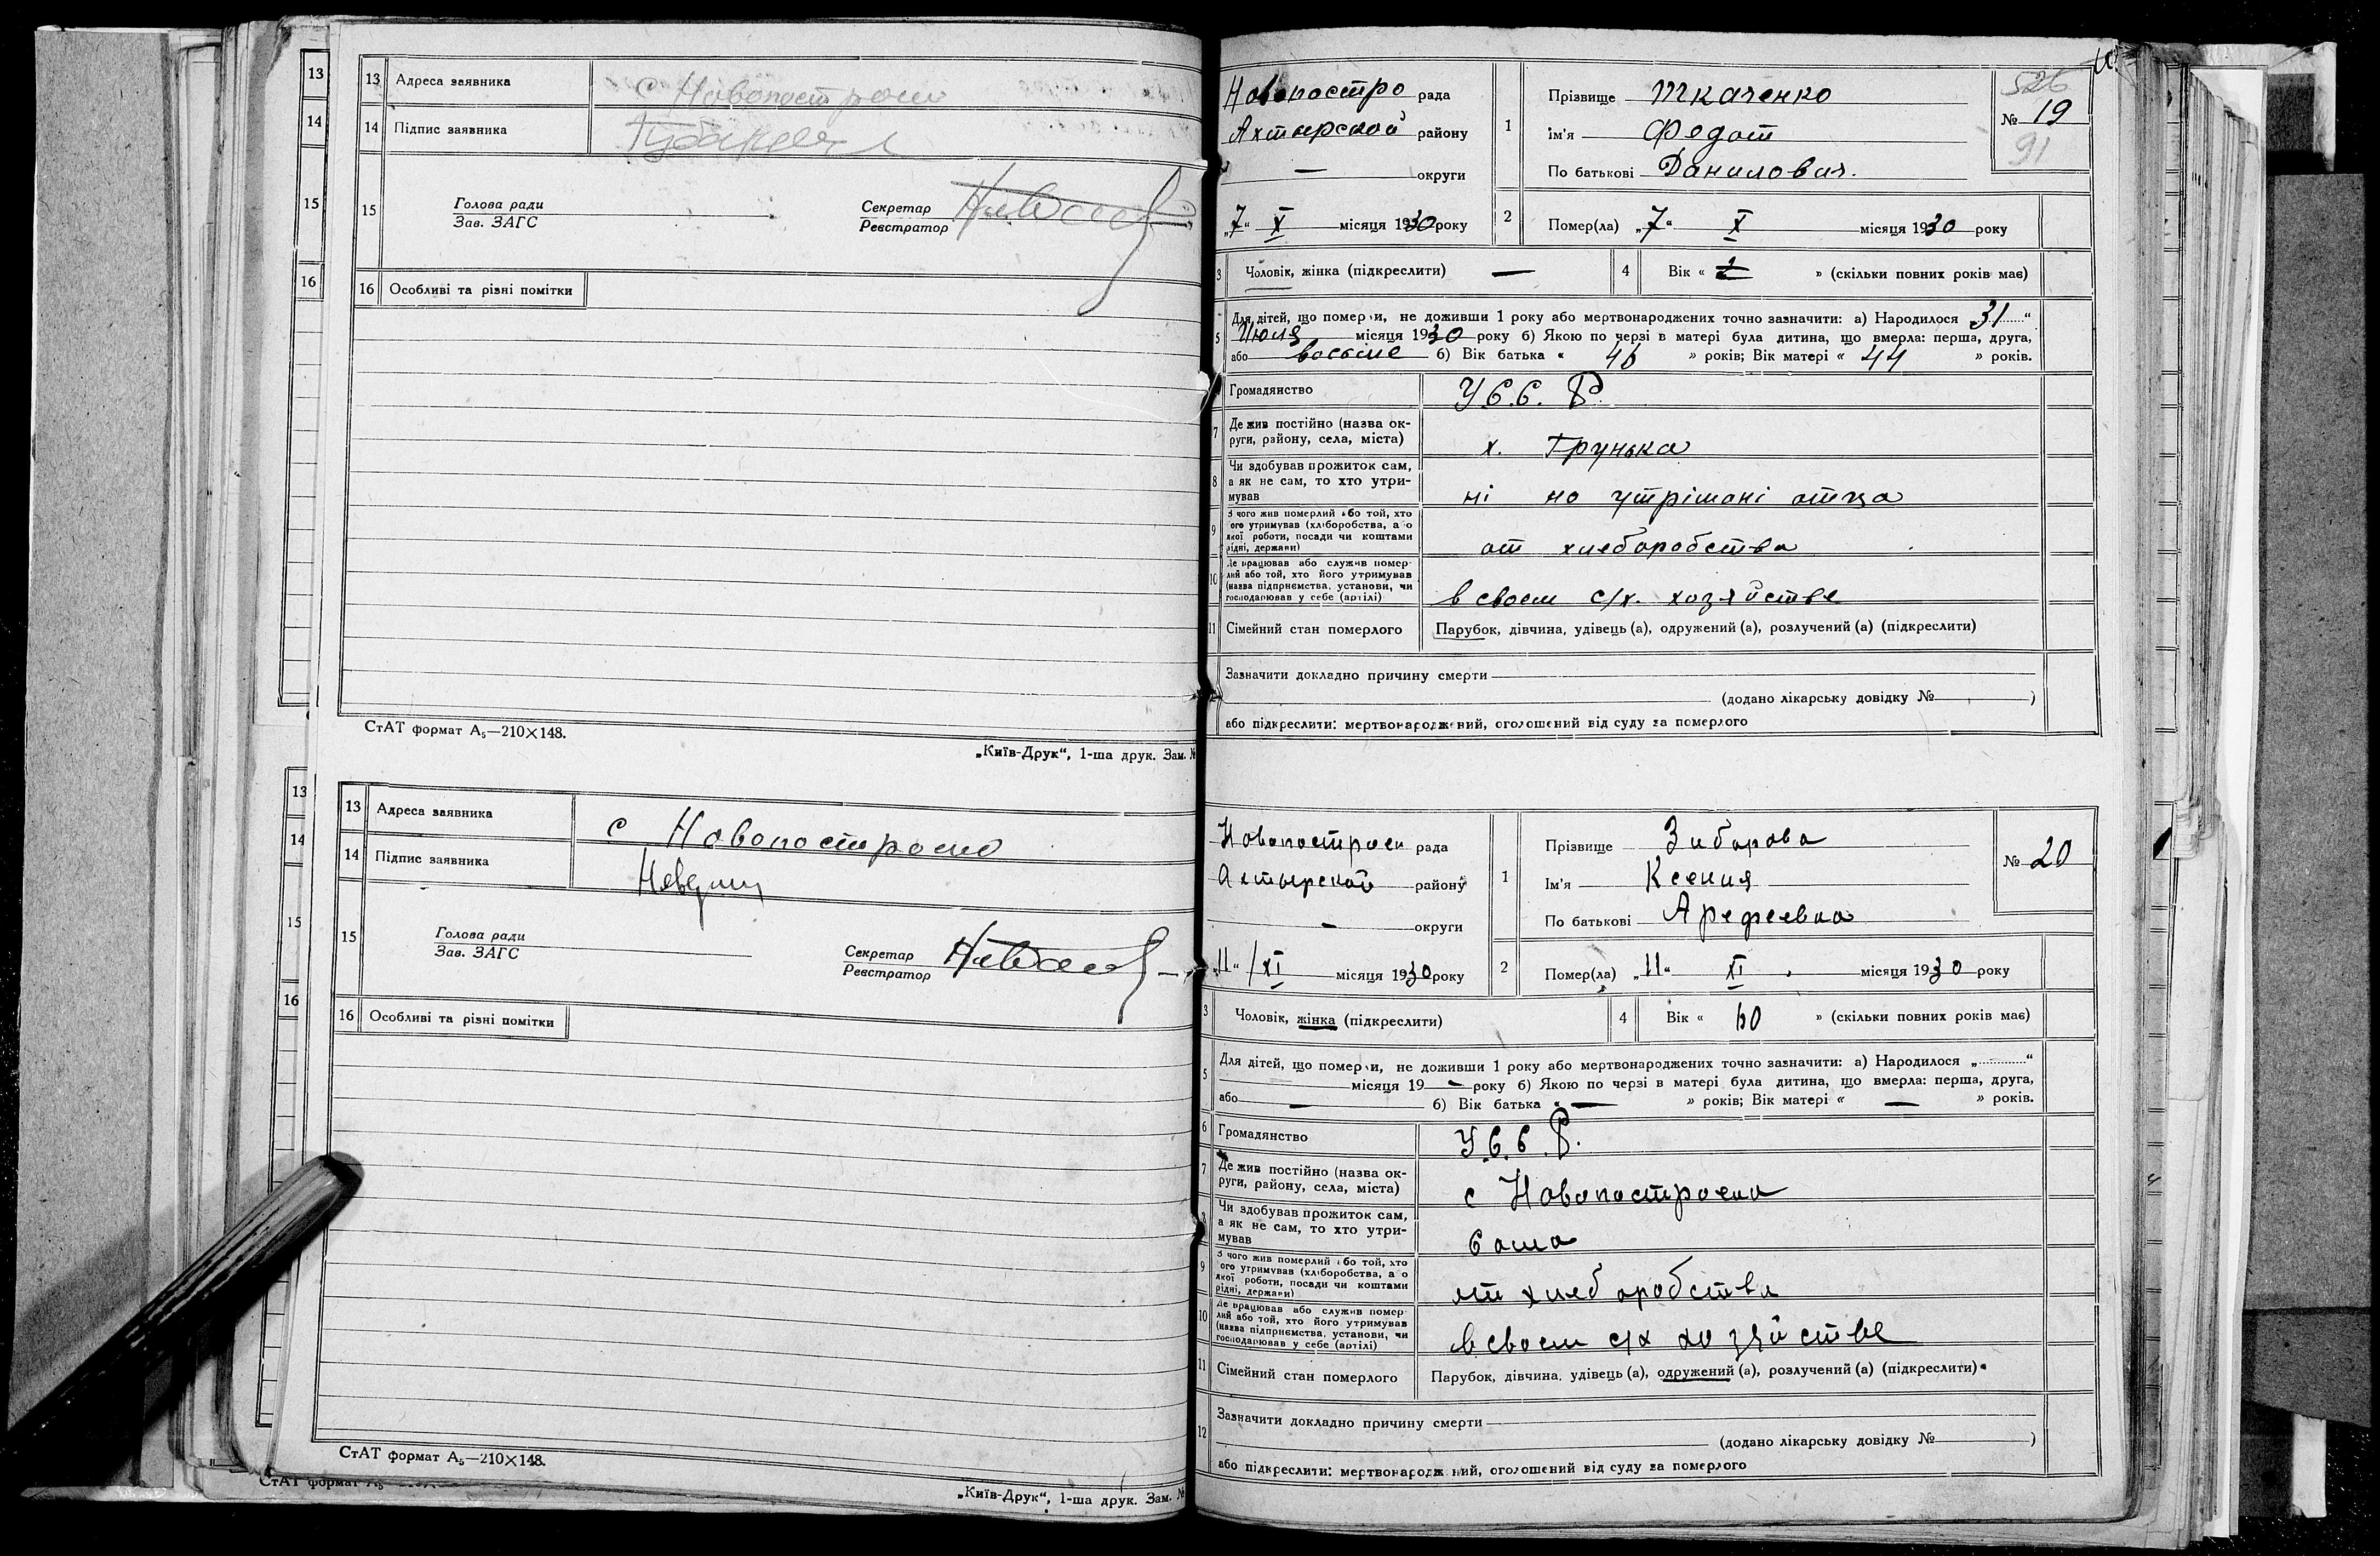 13
14
15
16
13 Адреса заявника с Новопостроено
14 Підпис заявника
15 Голова ради
Зав. ЗАГС
Секретар
Реєстратор
16 Особливі та різні помітки
СтАТ формат А₅—210×148.
„Київ-Друк“, 1-ша друк. Зам. №
13
14
15
16
13 Адреса заявника с Новопостроено
14 Підпис заявника
15 Голова ради
Зав. ЗАГС
Секретар
Реєстратор
16 Особливі та різні помітки
СтАТ формат А₅—210×148.
„Київ-Друк“, 1-ша друк. Зам. №
СтАТ формат А₅
Новопостро рада
Ахтырской району
— округи
„7“ X місяця 1930 року
1 Прізвище Ткаченко
Ім'я Федот
По батькові Данилович.
526
№ 19
91
2 Помер(ла) „7“ X місяця 1930 року
3 Чоловік, жінка (підкреслити) —
4 Вік « » (скільки повних років має)
5 Для дітей, що померли, не доживши 1 року або мертвонароджених точно зазначити: а) Народилося „31“
Июля місяця 1930 року б) Якою по черзі в матері була дитина, що вмерла: перша, друга,
або восьме б) Вік батька « 46 » років; Вік матері « 44 » років.
Громадянство У.С.С.Р.
7 Де жив постійно (назва округи, району, села, міста) х. Грунька
8 Чи здобував прожиток сам,
а як не сам, то хто утримував ні но утрімані отца
9 З чого жив померлий або той, хто
його утримував (хліборобства, або
якої роботи, посади чи коштами
рідні, держави) от хлеборобства
10 Де працював або служив померлий або той, хто його утримував
(назва підприємства, установи, чи
господарював у себе (артілі) в своем с/х. хозяйстве
11 Сімейний стан померлого Парубок, дівчина, удівець (а), одружений (а), розлучений (а) (підкреслити)
Зазначити докладно причину смерти
(додано лікарську довідку № )
або підкреслити: мертвонароджений, оголошений від суду за померлого
Новопостроен рада
Ахтырской району
— округи
„11“ / XI місяця 1930 року
1 Прізвище Зиборова
Ім'я Ксения
По батькові Арефеевна
№ 20
2 Помер(ла) „11“ XI місяця 1930 року
3 Чоловік, жінка (підкреслити)
4 Вік « 60 » (скільки повних років має)
5 Для дітей, що померли, не доживши 1 року або мертвонароджених точно зазначити: а) Народилося „ “
місяця 19 — року б) Якою по черзі в матері була дитина, що вмерла: перша, друга,
або — б) Вік батька « — » років; Вік матері « — » років.
6 Громадянство У.С.С.Р.
7 Де жив постійно (назва округи, району, села, міста) с Новопостроено
8 Чи здобував прожиток сам,
а як не сам, то хто утримував Сама
9 З чого жив померлий або той, хто
його утримував (хліборобства, або
якої роботи, посади чи коштами
рідні, держави) от хлеборобства
10 Де працював або служив померлий або той, хто його утримував
(назва підприємства, установи, чи
господарював у себе (артілі) в своем с/х хозяйстве
11 Сімейний стан померлого Парубок, дівчина, удівець (а), одружений (а), розлучений (а) (підкреслити)
12 Зазначити докладно причину смерти
(додано лікарську довідку № )
або підкреслити: мертвонароджений, оголошений від суду за померлого